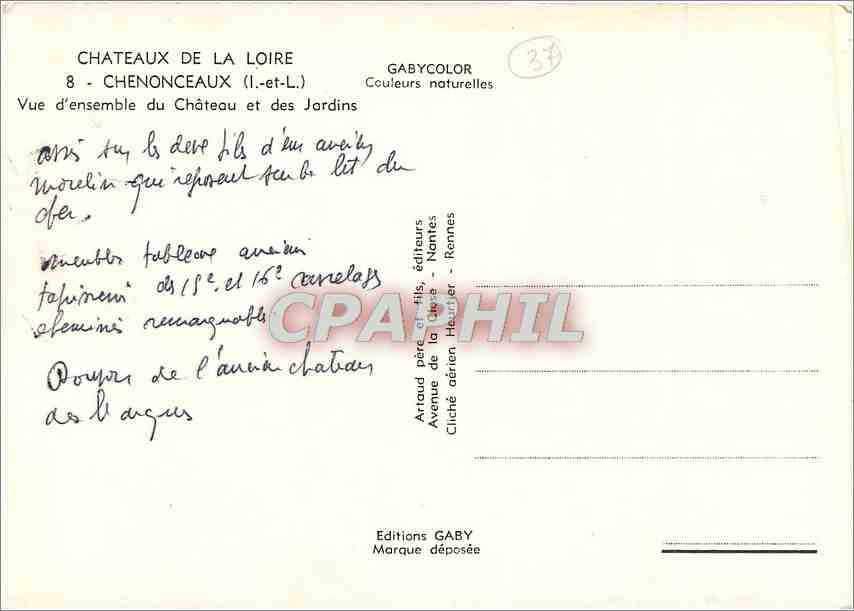 CHATEAUX DE LA LOIRE
8 - CHENONCEAUX (I.-et-L.)
Vue d'ensemble du Château et des Jardins
GABYCOLOR
Couleurs naturelles
37
assis sur les deux piles d'un ancien
moulin qui reposent sur le lit du
cher.
meubles tableaux anciens
tapisseries des 15e et 16e carrelages
cheminées remarquables
Donjon de l'ancien chateau
des Marques
CPAPHIL
Artaud père et fils, éditeurs
Avenue de la Close - Nantes
Cliché aérien Heurtier - Rennes
Editions GABY
Marque déposée